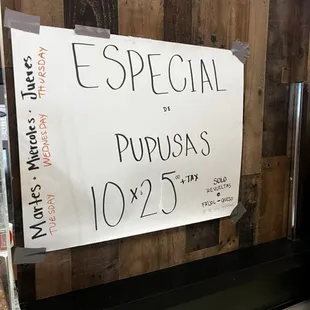 ESPECIAL
DE
PUPUSAS
10 x $ 25.00 + TAX
SOLO
REVUELTAS
o
FRIJOL - QUESO
Martes · Miercoles · Jueves
TUESDAY WEDNESDAY THURSDAY